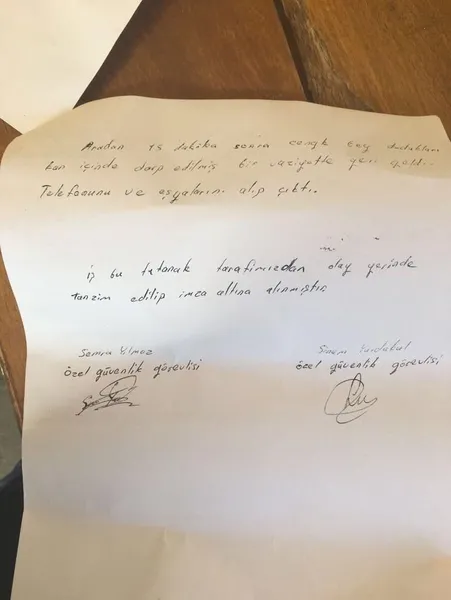 Aradan 15 dakika sonra cengk bey dudakları
kan içinde darp edilmiş bir vaziyette geri geldi.
Telefonunu ve eşyalarını alıp çıktı.
iş bu tutanak tarafımızdan olay yerinde
tanzim edilip imza altına alınmıştır
Semra Yılmaz
Sinem Yurdakul
özel güvenlik görevlisi
özel güvenlik görevlisi